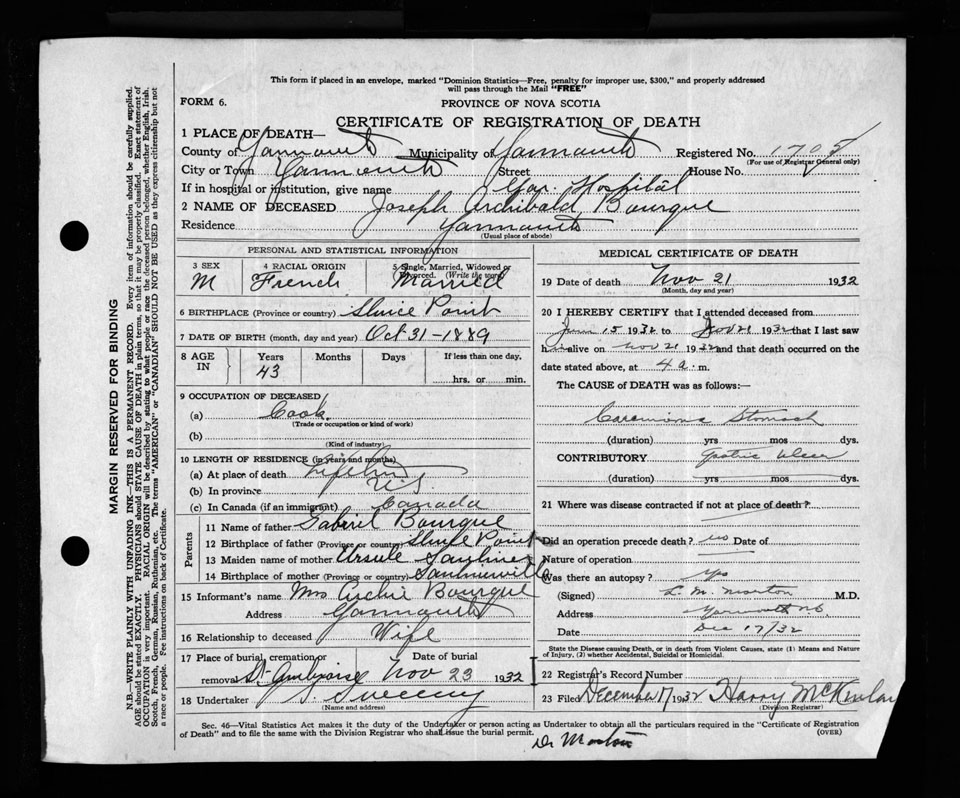 This form if placed in an envelope, marked "Dominion Statistics—Free, penalty for improper use, $300," and properly addressed
will pass through the Mail "FREE"
FORM 6.
PROVINCE OF NOVA SCOTIA
CERTIFICATE OF REGISTRATION OF DEATH
1 PLACE OF DEATH—
County of Yarmouth Municipality of Yarmouth Registered No. 1708
(For use of Registrar General only)
City or Town Yarmouth Street House No.
If in hospital or institution, give name Yar. Hospital
2 NAME OF DECEASED Joseph Archibald Bourque
Residence Yarmouth
(Usual place of abode)
PERSONAL AND STATISTICAL INFORMATION
3 SEX 4 RACIAL ORIGIN 5 Single, Married, Widowed or Divorced. (Write the word)
M French Married
6 BIRTHPLACE (Province or country) Sluice Point
7 DATE OF BIRTH (month, day and year) Oct 31-1889
8 AGE IN Years Months Days If less than one day,
43 hrs. or min.
9 OCCUPATION OF DECEASED
(a) Cook
(Trade or occupation or kind of work)
(b)
(Kind of industry)
10 LENGTH OF RESIDENCE (in years and months)
(a) At place of death Lifetime
(b) In province N S
(c) In Canada (if an immigrant) Canada
Parents
11 Name of father Gabriel Bourque
12 Birthplace of father (Province or country) Sluice Point
13 Maiden name of mother Ursule Saulnier
14 Birthplace of mother (Province or country) Saulnierville
15 Informant's name Mrs Archie Bourque
Address Yarmouth
16 Relationship to deceased Wife
17 Place of burial, cremation or Date of burial
removal St Ambroise Nov 23 1932
18 Undertaker Sweeny
(Name and address)
MEDICAL CERTIFICATE OF DEATH
19 Date of death Nov 21 1932
(Month, day and year)
20 I HEREBY CERTIFY that I attended deceased from
June 15 1932 to Nov 21 1932 that I last saw
him alive on Nov 21 1932 and that death occurred on the
date stated above, at 4 a. m.
The CAUSE of DEATH was as follows:—
Carcinoma Stomach
(duration) yrs mos dys.
CONTRIBUTORY Gastric Ulcer
(duration) yrs mos dys.
21 Where was disease contracted if not at place of death?
Did an operation precede death? no Date of
Nature of operation
Was there an autopsy? yes
(Signed) L. M. Morton M.D.
Address Yarmouth NS
Date Dec 17/32
State the Disease causing Death, or in death from Violent Causes, state (1) Means and Nature
of Injury, (2) whether Accidental, Suicidal or Homicidal.
22 Registrar's Record Number
23 Filed December 17 1932 Harry McKinlay
(Division Registrar)
Sec. 46—Vital Statistics Act makes it the duty of the Undertaker or person acting as Undertaker to obtain all the particulars required in the "Certificate of Registration
of Death" and to file the same with the Division Registrar who shall issue the burial permit. (OVER)
Dr Morton
MARGIN RESERVED FOR BINDING
N.B.—WRITE PLAINLY WITH UNFADING INK—THIS IS A PERMANENT RECORD. Every item of information should be carefully supplied.
AGE should be stated EXACTLY. PHYSICIANS should STATE CAUSE OF DEATH in plain terms, so that it may be properly classified. Exact statement of
OCCUPATION is very important. RACIAL ORIGIN will be described by stating to what people or race the deceased person belonged, whether English, Irish,
Scotch, French, German, Russian, Ruthenian, etc. The terms "AMERICAN" or "CANADIAN" SHOULD NOT BE USED as they express citizenship but not
a race or people. See instructions on back of Certificate.